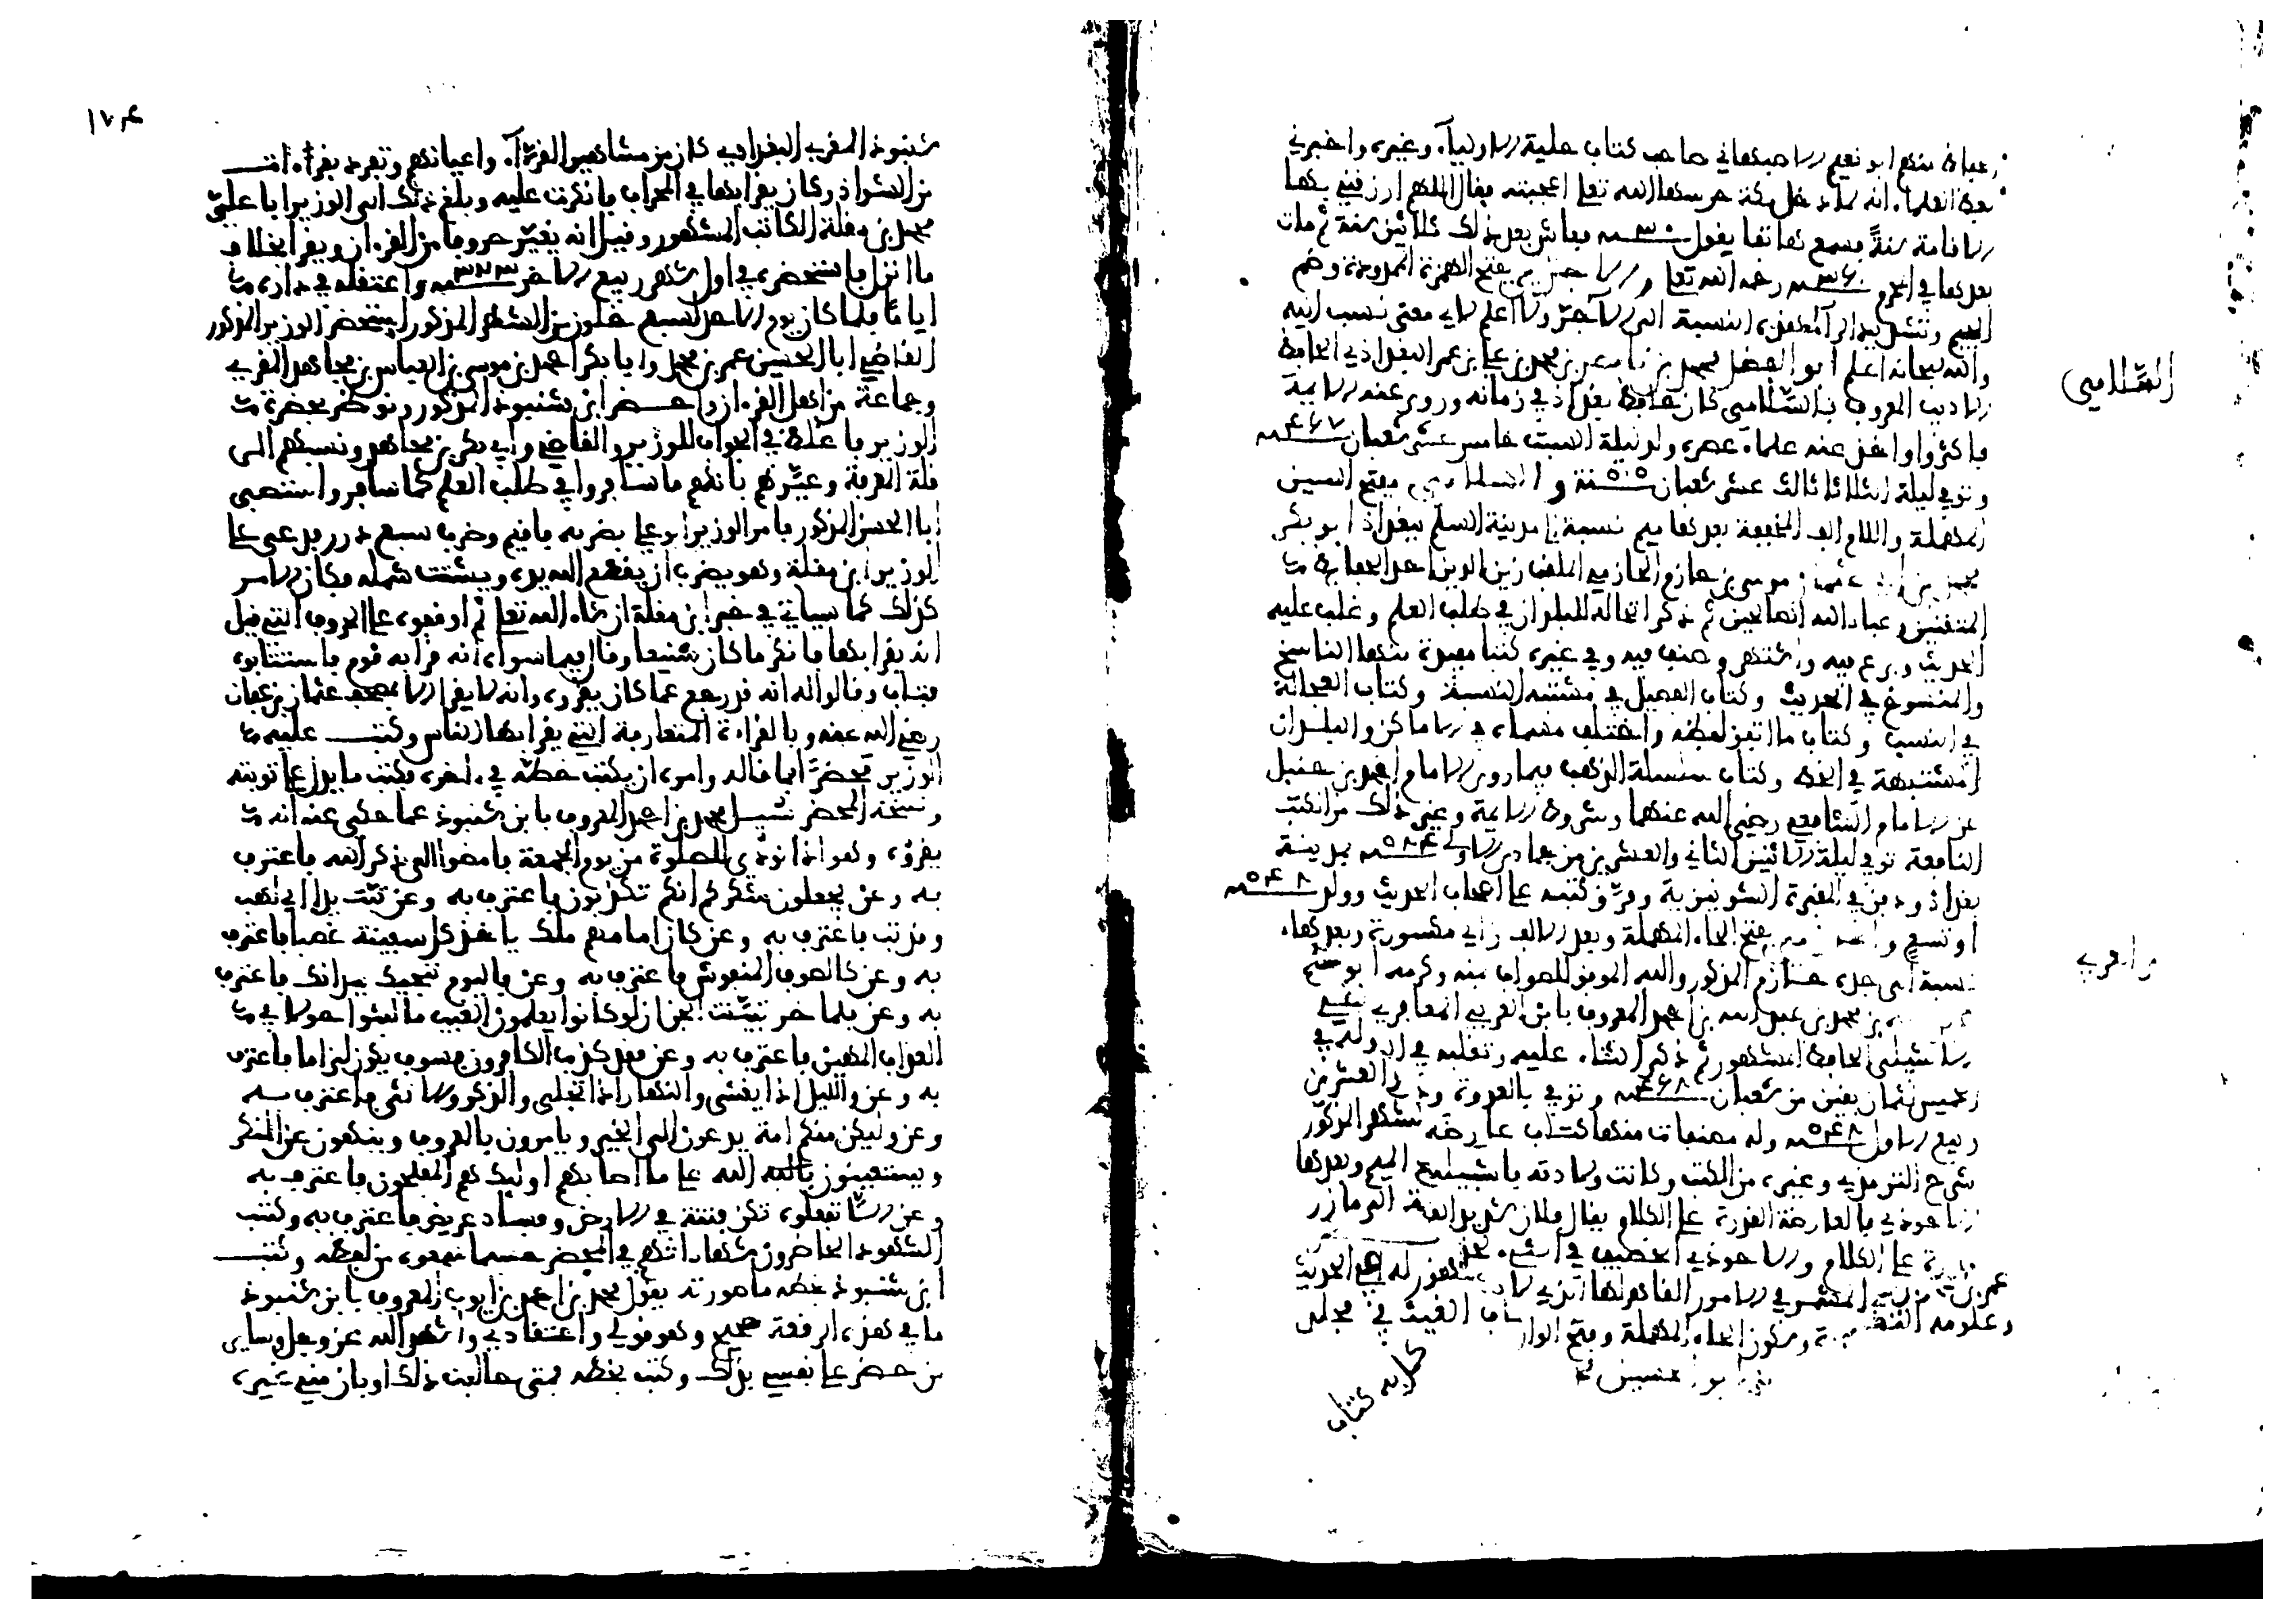 منهم ابو نعيم الاصبهاني صاحب كتاب حلية الاوليآء وغيره واخبرني
بعض العلماء انه لما دخل مكة حرسها الله تعلى اعجبته فقال اللهم ارزقني بها
الاقامة سنةً فسمع هاتفا يقول ٣٠ سنة فعاش بعد ذلك ثلاثين سنة ثم مات
بعدها في المحرم ٣٦٠ رحمه الله تعلى والاجري بفتح الهمزة الممدودة وضم
الجيم وتشديد الرآ المهملة النسبة الى الآجر ولا اعلم لاي معنى نسب اليه
والله سبحانه اعلم ابو الفضل محمد بن ناصر بن محمد بن علي بن عمر البغداذي الحافظ
الاديب المعروف بالسَّلامي كان حافظ بغداذ في زمانه وروى عنه الايمة
فاكثروا واخذ عنه علماء عصره ولد ليلة السبت خامس عشر شعبان ٤٦٧
وتوفي ليلة الثلاثا ثالث عشر شعبان ٥٥٠ والسلامي بفتح السين
المهملة واللام الف المخففة بعدها ميم نسبة الى مدينة السلم ببغداذ ابو بكر
محمد بن ابي عثمان موسى بن حازم الحازمي الملقب زين الدين احد الحفاظ
المتقنين وعباد الله الصالحين ثم ذكر ارتحاله للبلدان في طلب العلم وغلب عليه
الحديث وبرع فيه واشتهر وصنف فيه وفي غيره كتبا مفيدة منها الناسخ
والمنسوخ في الحديث وكتاب الفيصل في مشتبه النسبة وكتاب العجالة
في النسب وكتاب ما اتفق لفظه واختلف مسماه في الاماكن والبلدان
المشتبهة في الخط وكتاب سلسلة الذهب فيما روى الامام احمد بن حنبل
عن الامام الشافعي رضي الله عنهما وشروط الايمة وغير ذلك من الكتب
النافعة توفي ليلة الاثنين الثاني والعشرين من جمادى الاولى ٥٨٤ بمدينة
بغداذ ودفن في المقبرة الشونيزية وفرّق كتبه على اصحاب الحديث وولد ٥٤٨
او تسع والحازمي بفتح الحاء المهملة وبعد الالف زاي مكسورة وبعدها
نسبة الى جده حازم المذكور والله الموفق للصواب بمنه وكرمه ابو بكر
بن محمد بن عبد الله بن احمد المعروف بابن العربي المعافري
الاشبيلي الحافظ المشهور ثم ذكر الثناء عليه وتقلبه في
الخميس لثمان بقين من شعبان ٤٦٨ وتوفي بالعدوة ودفن
ربيع الاول ٥٤٣ وله مصنفات منها كتاب عارضة
شرح الترمذي وغيره من الكتب وكانت ولادته باشبيلية
الاحوذي فالعارضة القدرة على الكلام يقال فلان شديد العارضة اذا
قدرة على الكلام والاحوذي الخفيف في الشيء
المشمر في الامور القاهر لها الذي لا
وسكون الحاء المهملة وفتح الواو
السَّلامي
ابن العربي
١٧٤
شنبوذ المقرئ البغداذي كان من مشاهير القرّآء واعيانهم وتفرد بقراءات
من الشواذ وكان يقرا بها في المحراب فانكرت عليه وبلغ ذلك الى الوزير ابا علي
محمد بن مقلة الكاتب المشهور وقيل انه يغيّر حروفا من القرءان ويقرا بخلاف
ما انزل فاستحضره في اول شهر ربيع الاخر ٣٢٣ واعتقله في داره
اياما فلما كان يوم الاحد لسبع خلون من الشهر المذكور استحضر الوزير المذكور
القاضي ابا الحسين عمر بن محمد وابا بكر احمد بن موسى بن العباس بن مجاهد المقرئ
وجماعة من اهل القرءان واحضر ابن شنبوذ المذكور ونوظر بحضرة
الوزير فاغلظ في الجواب للوزير والقاضي وابي بكر بن مجاهد ونسبهم الى
قلة المعرفة وعيّرهم بانهم ما سافروا في طلب العلم كما سافر واستصبى
ابا الحسن المذكور فامر الوزير ابو علي بضربه فاقيم وضرب سبع درر فدعى على
الوزير ابن مقلة وهو يضرب ان يقطع الله يده ويشتت شمله فكان الامر
كذلك كما سياتي في خبر ابن مقلة ان شاء الله تعلى ثم اوقفوه على الحروف التي قيل
انه يقرا بها فانكر ما كان شنيعا وقال فيما سواه انه قرا به قوم فاستتابوه
فتاب وقالوا له انه قد رجع عما كان يقرؤه وانه لا يقرا الا بمصحف عثمان بن عفان
رضي الله عنه وبالقراءة المتعارفة التي يقرا بها الناس وكتب عليه
الوزير محضرًا بما قاله وامره ان يكتب خطه في ءاخره فكتب ما يدل على توبته
ونسخة المحضر سُيِل محمد بن احمد المعروف بابن شنبوذ عما حكي عنه انه
يقرؤه وهو اذا نودي للصلوة من يوم الجمعة فامضوا الى ذكر الله فاعترف
به وعن وتجعلون شكركم انكم تكذبون فاعترف به وعن تبت يدا ابي لهب
وقد تب فاعترف به وعن كان امامهم ملك ياخذ كل سفينة غصبا فاعترف
به وعن كالصوف المنفوش فاعترف به وعن فاليوم ننجيك ببدانك فاعترف
به وعن فلما خر تبيّنت الجن ان لو كانوا يعلمون الغيب ما لبثوا حولا في
العذاب المهين فاعترف به وعن فقد كذب الكافرون فسوف يكون لزاما فاعترف
به وعن والليل اذا يغشى والنهار اذا تجلى والذكر والانثى فاعترف به
وعن ولتكن منكم امة يدعون الى الخير ويامرون بالمعروف وينهون عن المنكر
ويستعينون بالله الله على ما اصابهم اوليك هم المفلحون فاعترف به
وعن الّا تفعلوه تكن فتنة في الارض وفساد عريض فاعترف به وكتب
الشهود الحاضرون شهاداتهم في المحضر حسبما سمعوه من لفظه وكتب
ابن شنبوذ بخطه ما صورته يقول محمد بن احمد بن ايوب المعروف بابن شنبوذ
ما في هذه الرقعة صحيح وهو قولي واعتقادي واشهد الله عز وجل وساير
من حضر على نفسي بذلك وكتب بخطه فمتى خالفت ذلك او بان مني غيره